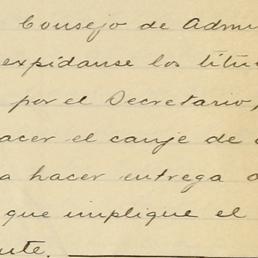 Consejo de Admi
expídanse los títu
por el Secretario,
acer el canje de
a hacer entrega
que implique el
nte.